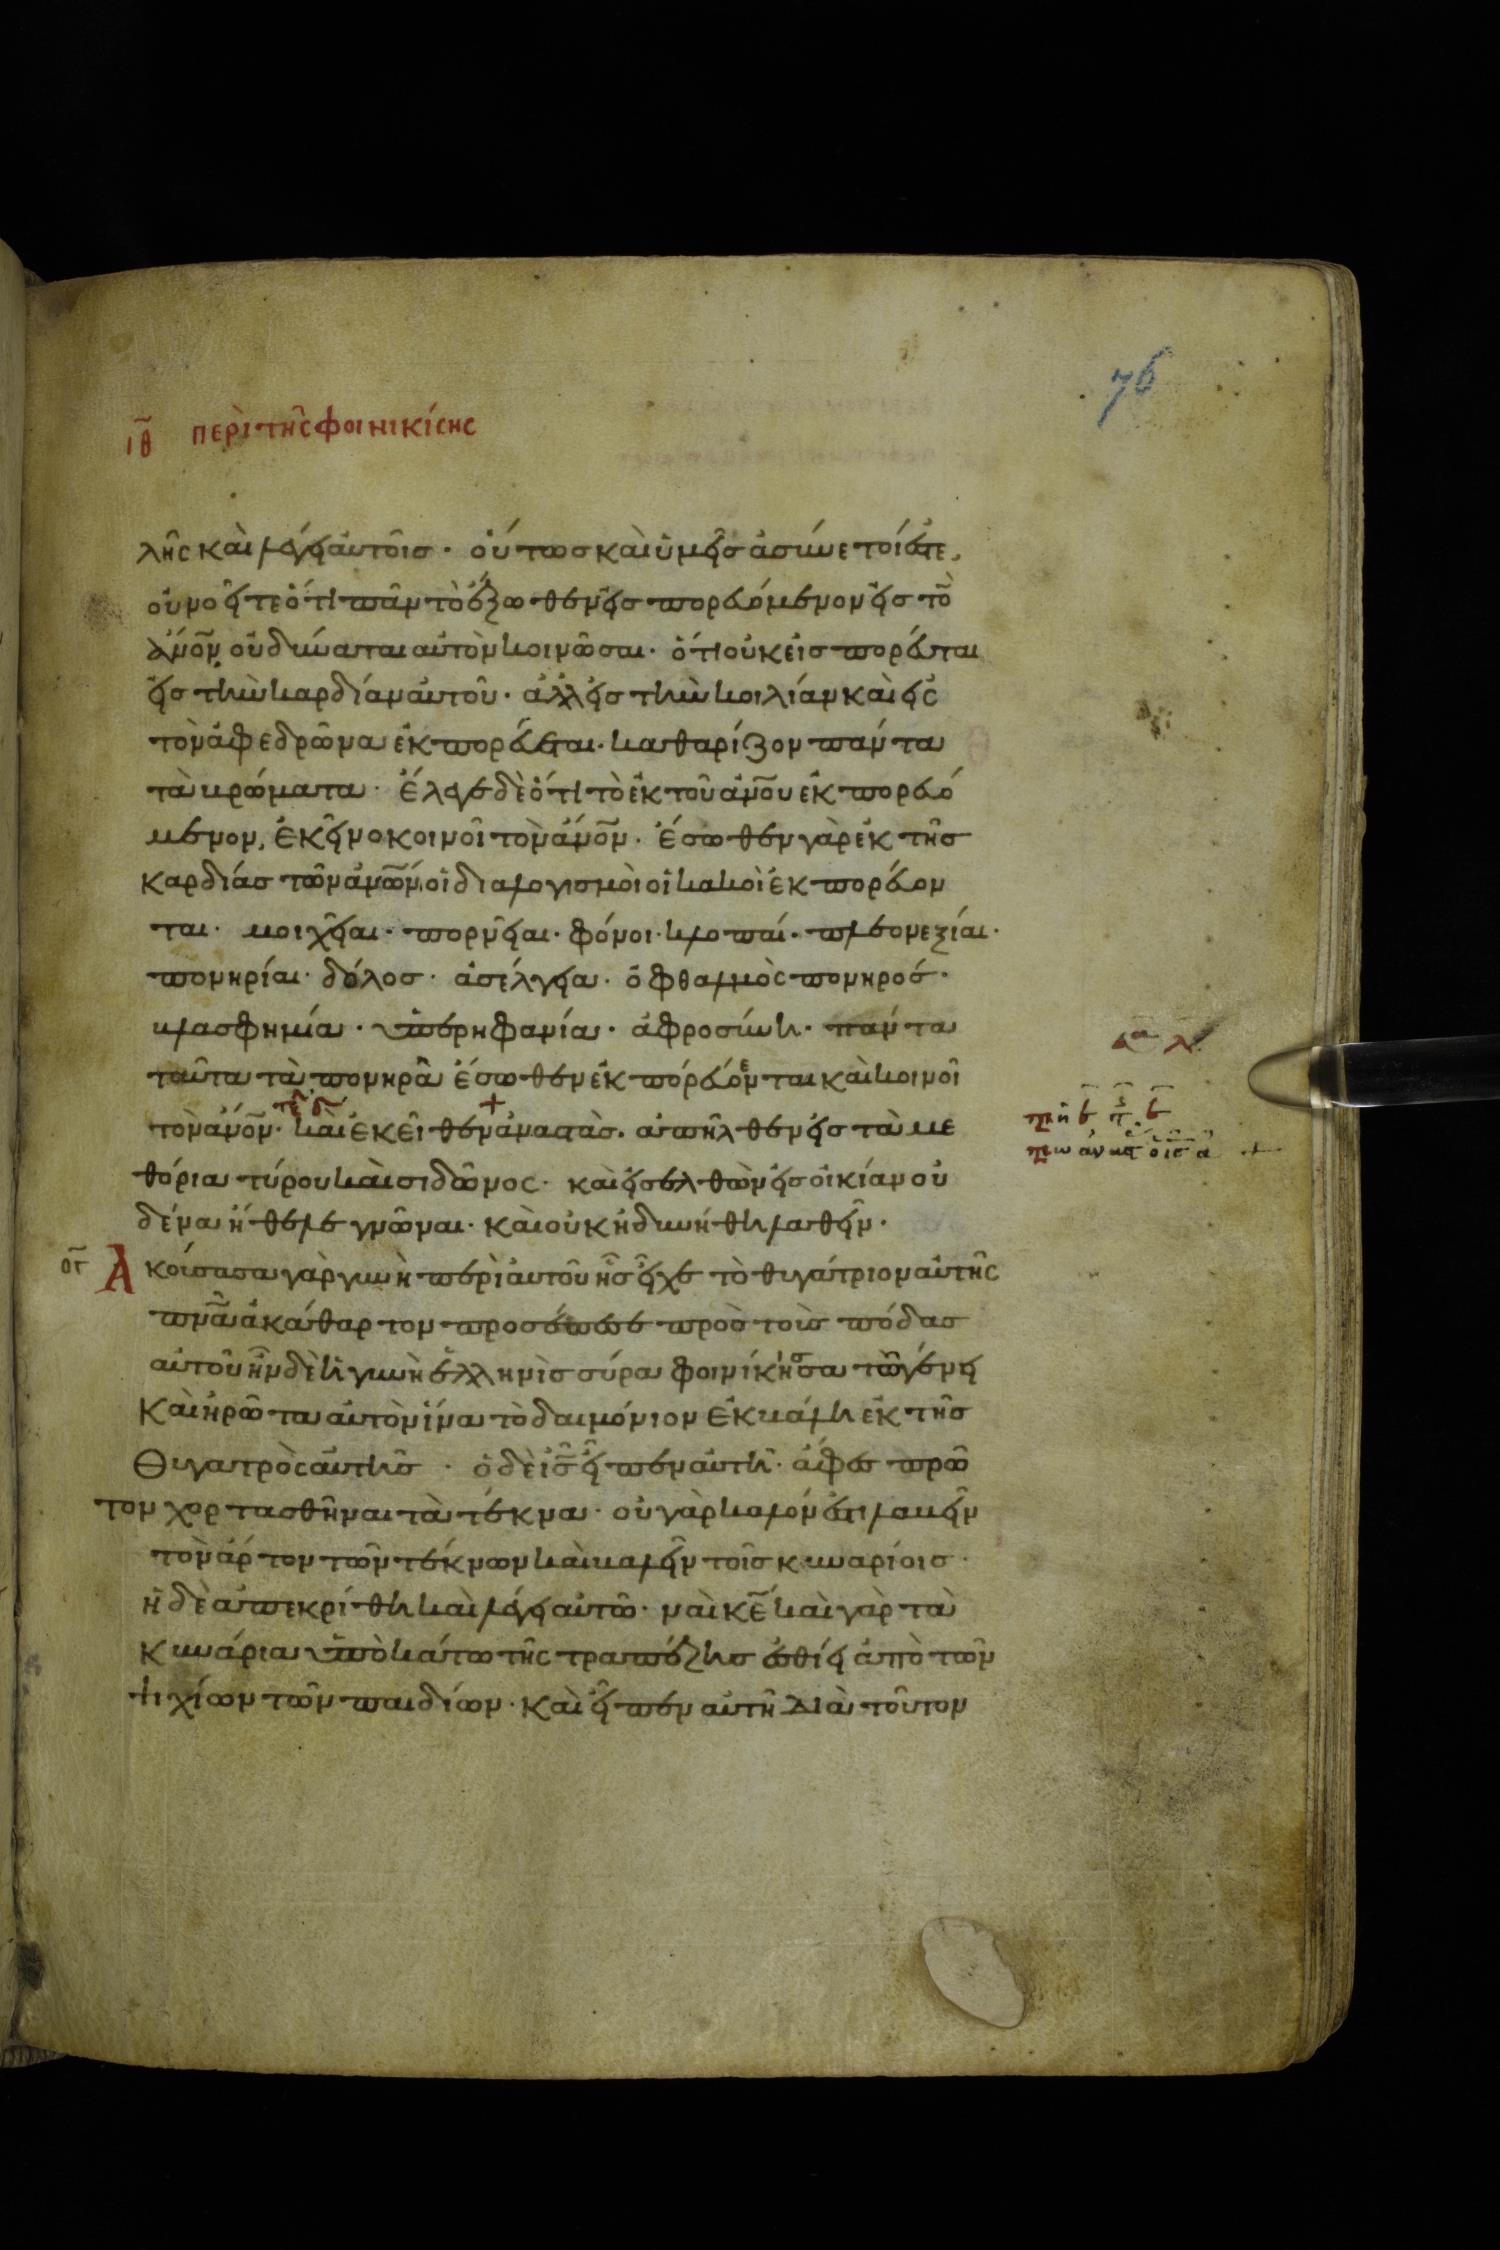 76
ιθ̄ περὶ τῆς φοινικίσης
λῆς καὶ λέγει αὐτοῖς · οὕτως καὶ ὑμεῖς ἀσύνετοί ἐστε,
οὐ νοεῖτε ὅτι πᾶν τὸ ἔξωθεν εἰς πορευόμενον εἰς τὸ͂ν
ἀν͂ον οὐ δύναται αὐτὸν κοινῶσαι · ὅτι οὐκ εἰσπορεύεται
εἰς τὴν καρδίαν αὐτοῦ · ἀλλ εἰς τὴν κοιλίαν καὶ εἰς
τὸν ἀφεδρῶνα ἐκπορεύεται · καθαρίζον πάντα
τὰ βρώματα · ἔλεγε δὲ ὅτι τὸ ἐκ τοῦ ἀν͂ου ἐκπορευό
μενον, ἐκεῖνο κοινοῖ τὸν ἄν͂ον · ἔσωθεν γὰρ ἐκ τῆς
καρδίας τῶν ἀν͂ων, οἱ διαλογισμοὶ οἱ κακοὶ ἐκπορεύον
ται · μοιχεῖαι · πορνεῖαι · φόνοι · κλοπαί · πλεονεξίαι ·
πονηρίαι · δόλος · ἀσέλγεια · ὀφθαλμὸς πονηρός ·
βλασφημία · ὑπερηφανία · ἀφροσύνη · πάντα
ταῦτα τὰ πονηρὰ ἔσωθεν ἐκπορεύονται καὶ κοινοῖ
τὸν ἄν͂ον · καὶ ἐκεῖθεν ἀναστὰς · ἀπῆλθεν εἰς τὰ με
θόρια τύρου καὶ σιδῶνος · καὶ εἰσελθὼν εἰς οἰκίαν οὐ
δένα ἤθελε γνῶναι · καὶ οὐκ ἠδυνήθη λαθεῖν ·
ογ̄ Ακούσασα γὰρ γυνὴ περὶ αὐτοῦ ἧς εἶχε τὸ θυγάτριον αὐτῆς
πν͂α ἀκάθαρτον προσέπεσε πρὸς τοὺς πόδας
αὐτοῦ ἦν δὲ ἡ γυνὴ ἑλληνὶς σύρα φοινίκησσα τῶ γένει
Καὶ ἠρώτα αὐτὸν ἵνα τὸ δαιμόνιον ἐκβάλη ἐκ τῆς
Θυγατρὸς αὐτῆς · ὁ δὲ ις͂ εἶπεν αὐτῆ · ἄφες πρῶ
τον χορτασθῆναι τὰ τέκνα · οὐ γὰρ καλόν ἐστι λαβεῖν
τὸν ἄρτον τῶν τέκνων καὶ βαλεῖν τοῖς κυναρίοις ·
ἡ δὲ ἀπεκρίθη καὶ λέγει αὐτῶ · ναὶ κε͂ καὶ γὰρ τὰ
κυνάρια ὑποκάτω τῆς τραπέζης ἐσθίει ἀπὸ τῶν
ψιχίων τῶν παιδίων · καὶ εἶπεν αὐτῆ Διὰ τοῦτον